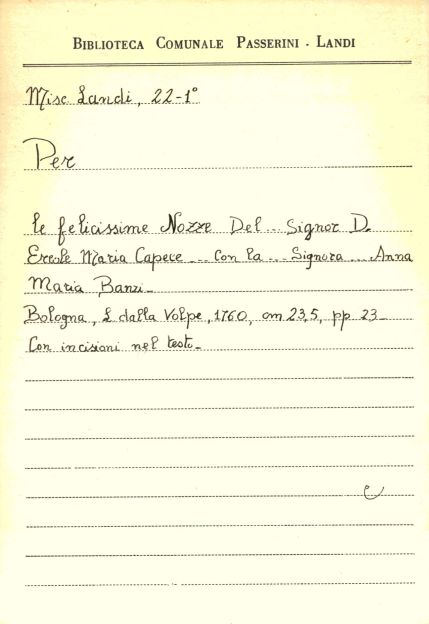 BIBLIOTECA COMUNALE PASSERINI - LANDI
Misc Landi, 22-1°
Per
le felicissime Nozze Del... Signor D.
Ercole Maria Capece... Con la... Signora... Anna
Maria Banzi_
Bologna, L dalla Volpe, 1760, cm 23,5, pp 23_
Con incisioni nel testo_